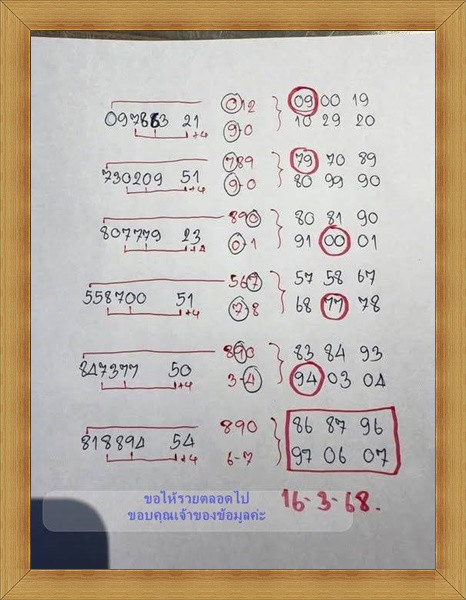 012 09 00 19
097863 21 +4 9-0 10 29 20
789 79 70 89
730209 51 +4 9-0 80 99 90
890 80 81 90
807779 23 +4 0-1 91 00 01
567 57 58 67
558700 51 +4 7-8 68 77 78
890 83 84 93
847377 50 +4 3-4 94 03 04
890 86 87 96
818894 54 +4 6-7 97 06 07
16-3-68.
ขอให้รวยตลอดไป
ขอบคุณเจ้าของข้อมูลค่ะ